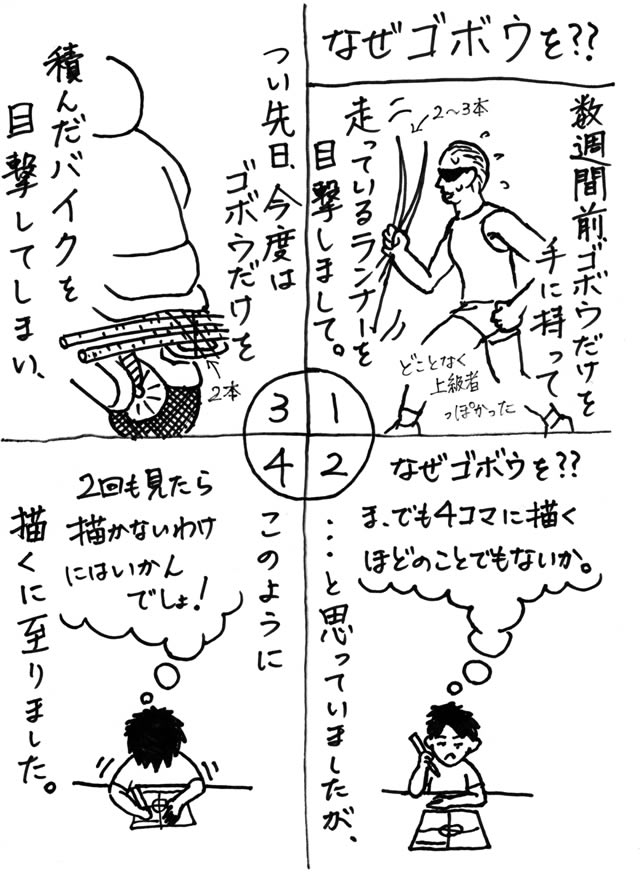 なぜゴボウを??
数週間前、ゴボウだけを
手に持って
走っているランナーを
目撃しまして。
2〜3本
どことなく
上級者
っぽかった
1
2
3
4
なぜゴボウを??
ま、でも4コマに描く
ほどのことでもないか。
・・・と思っていましたが、
つい先日、今度は
ゴボウだけを
積んだバイクを
目撃してしまい、
2本
このように
2回も見たら
描かないわけ
にはいかん
でしょ!
描くに至りました。